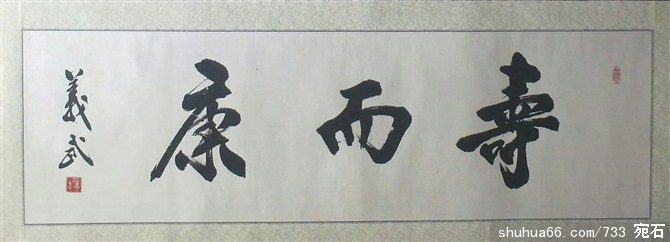 壽而康
義武
shuhua66.com/733 宛石